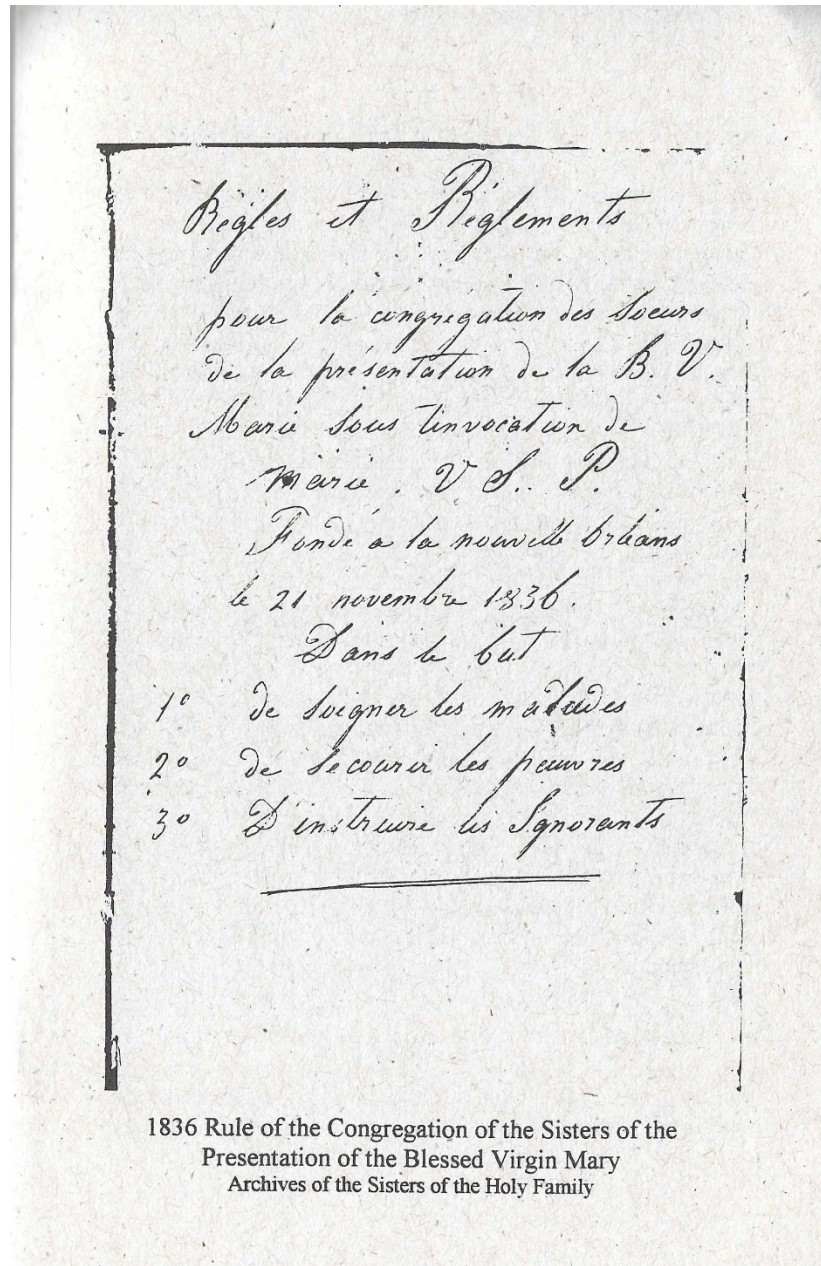 Règles et Règlements
pour la congrégation des Soeurs
de la présentation de la B. V.
Marie sous l'invocation de
marie. V S.. P.
Fondé a la nouvelle Orléans
le 21 novembre 1836.
Dans le but
1º de soigner les malades
2º de secourir les pauvres
3º D'instruire les Ignorants
1836 Rule of the Congregation of the Sisters of the
Presentation of the Blessed Virgin Mary
Archives of the Sisters of the Holy Family